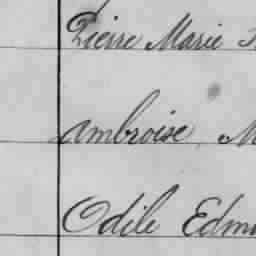 Pierre Marie
Ambroise, M
Odile Edm